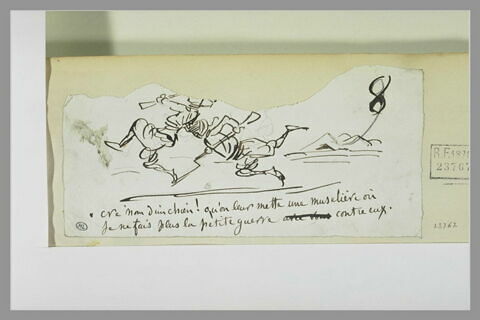 8
. cré nom d'un chien ! qu'on leur mette une muselière ou
je ne fais plus la petite guerre avec vous contre eux.
R.F.
2376